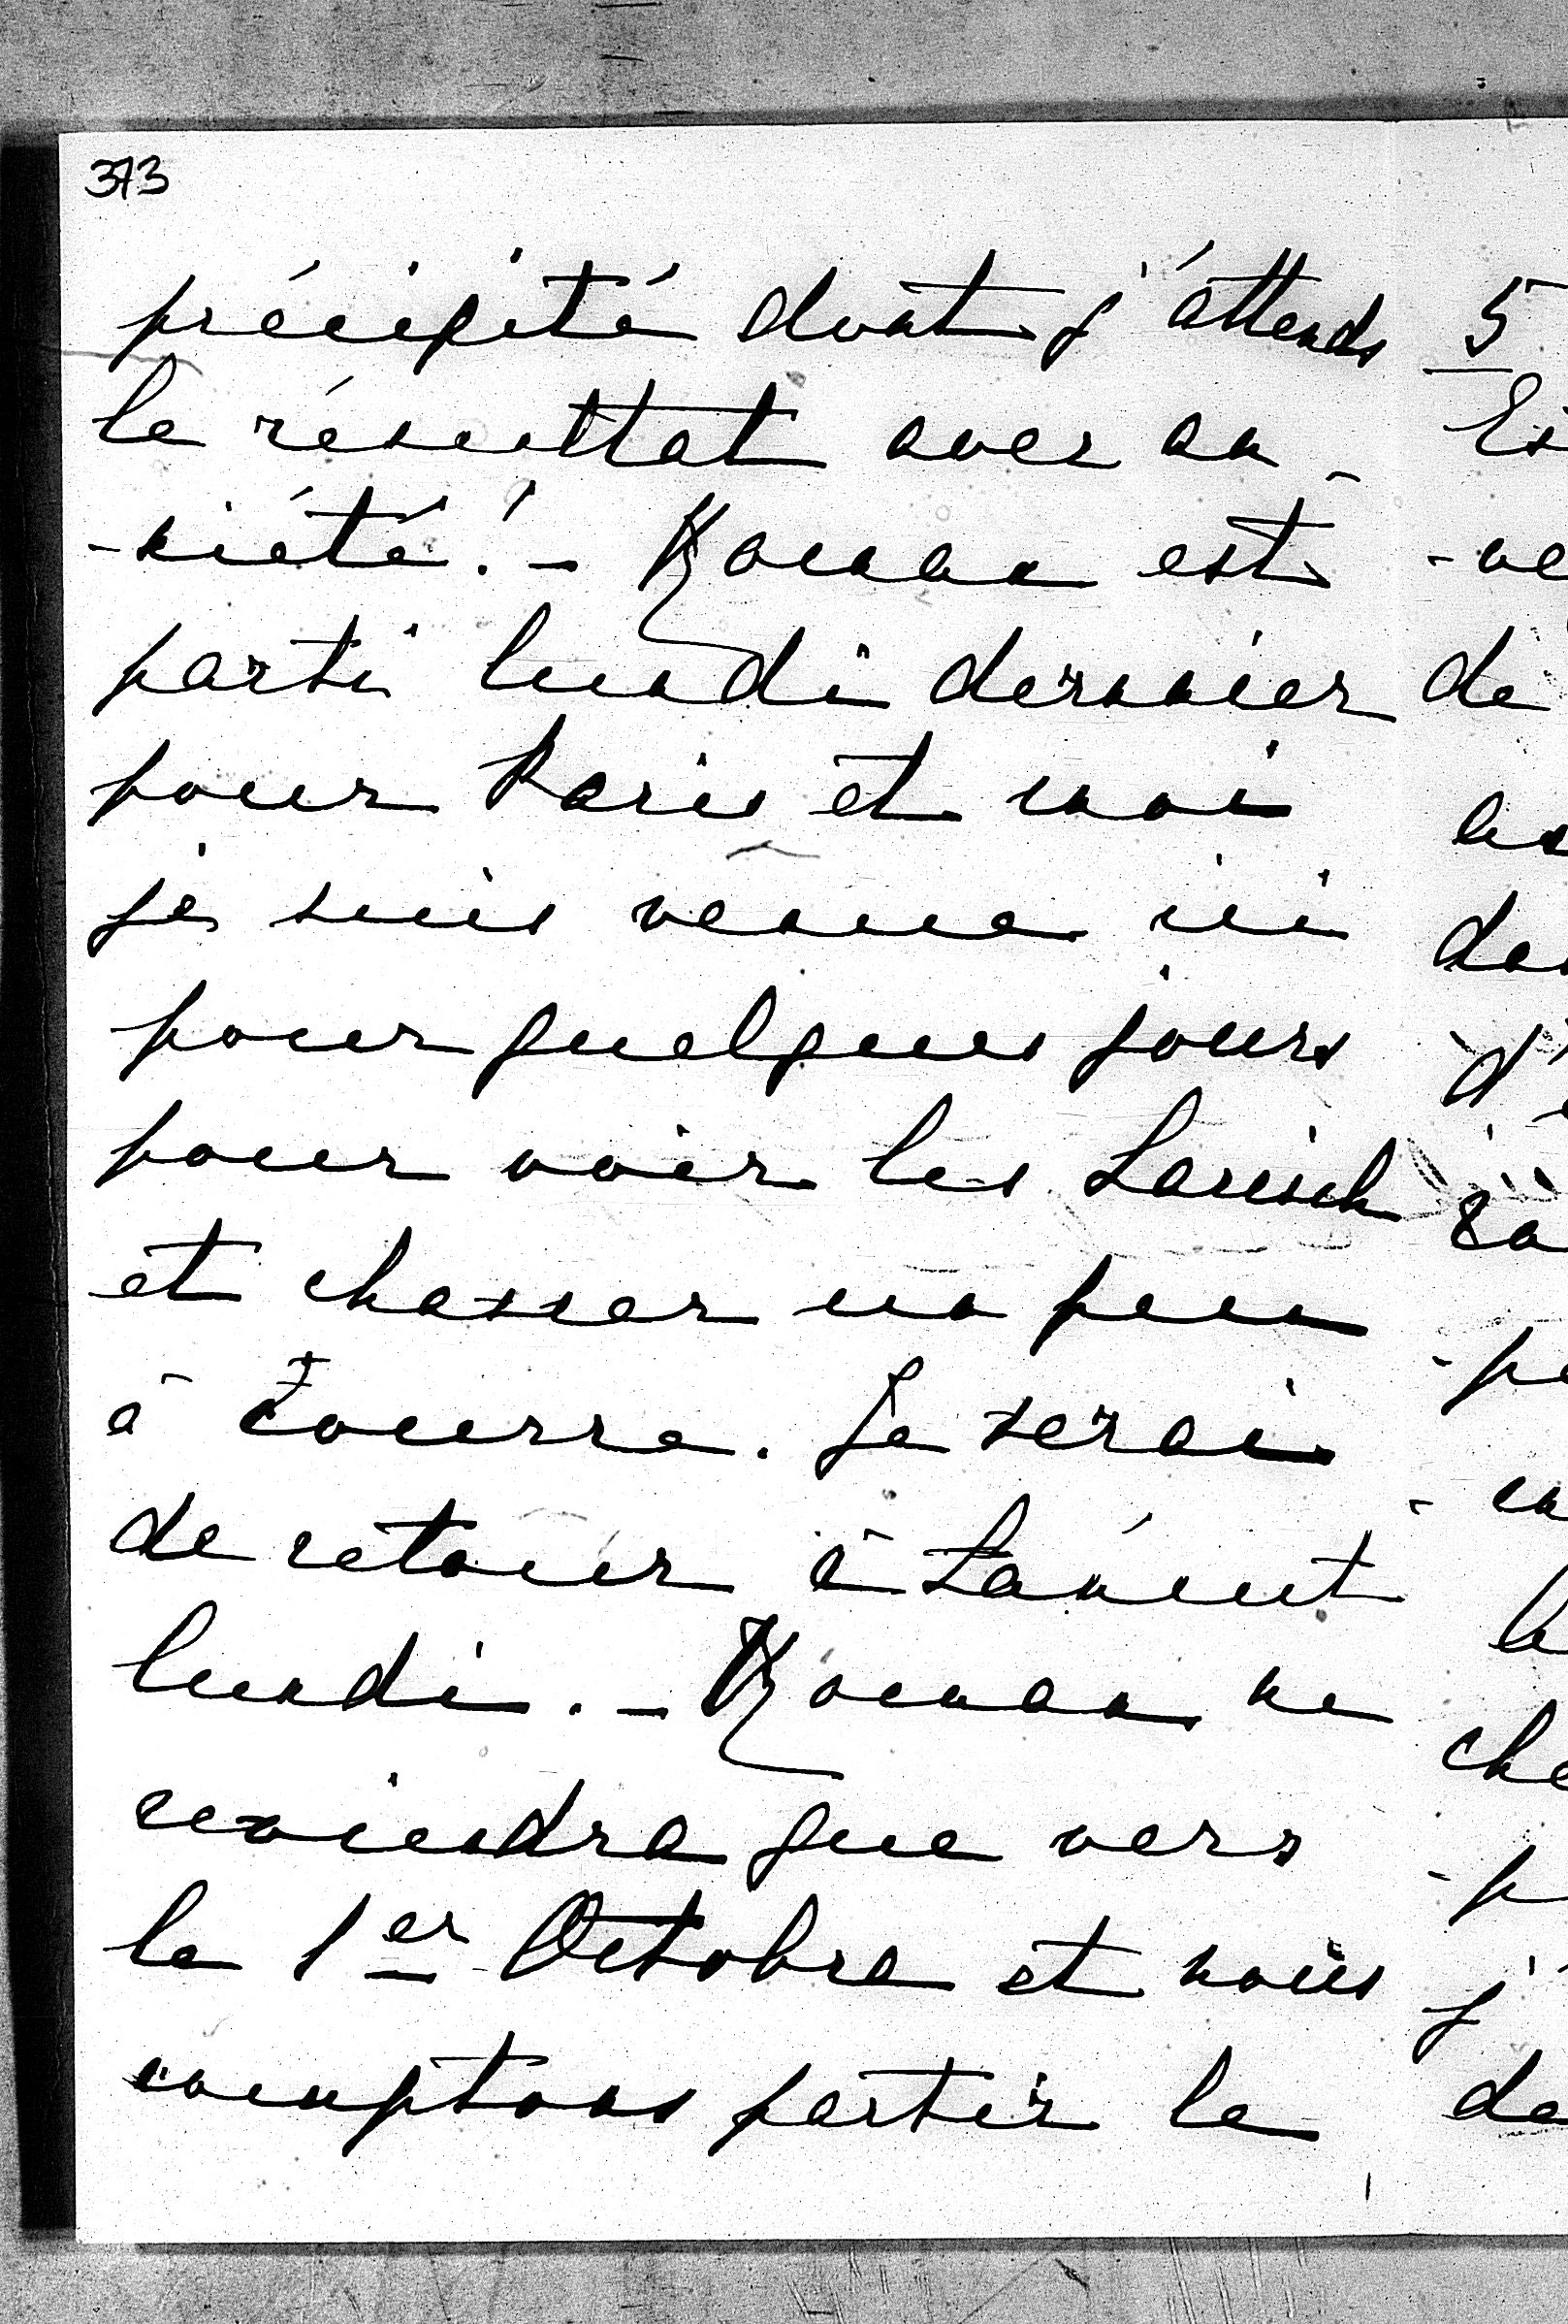 373
précipité dont j'attends
le résultat avec an-
-xiété! - Roman est
parti lundi dernier
pour Paris et moi
je suis venue ici
pour quelques jours
pour voir les Larisch
et chasser un peu
à Tourra. Je serai
de retour à Łańcut
lundi. - Roman ne
reviendra que vers
le 1er Octobre et nous
comptons partir le
5
-ve
de
d'
-pe
che
-p
j'
de